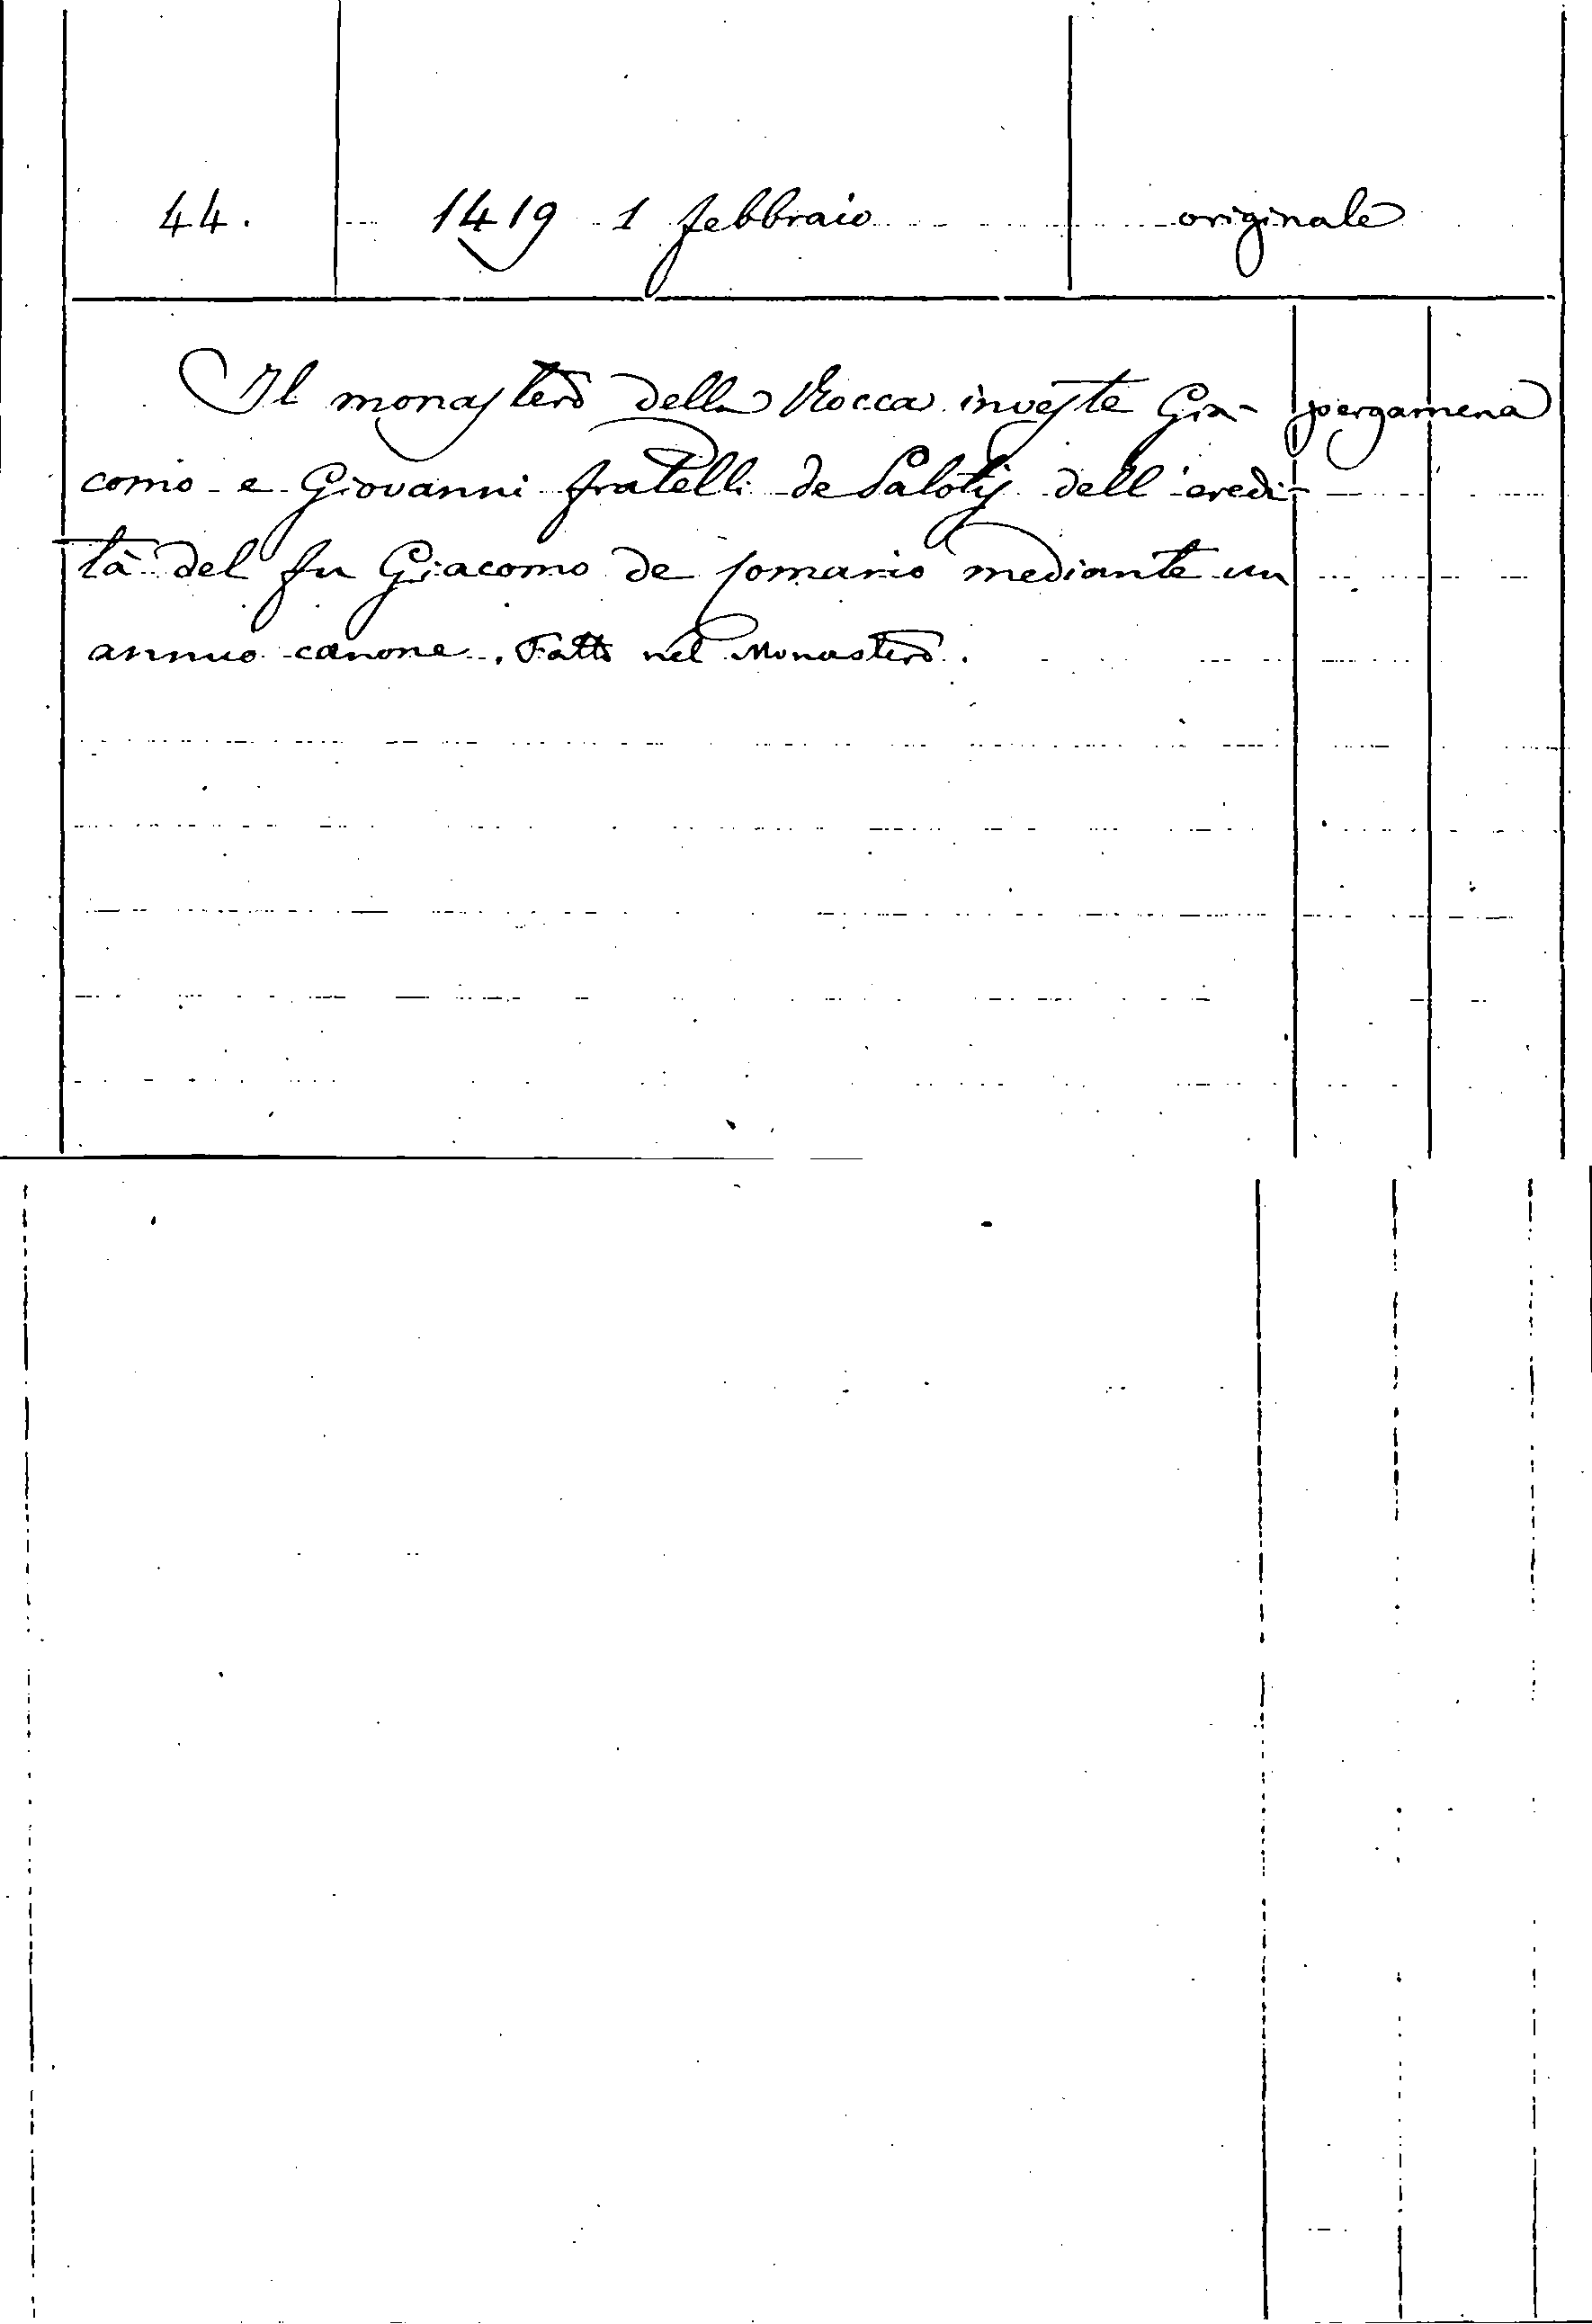 44. 1419 1 febbraio originale
Il monastero della Rocca investe Gia- pergamena
como e Giovanni fratelli de Salotis dell'eredi-
tà del fu Giacomo de somario mediante un
annuo canone. Fatto nel Monastero.